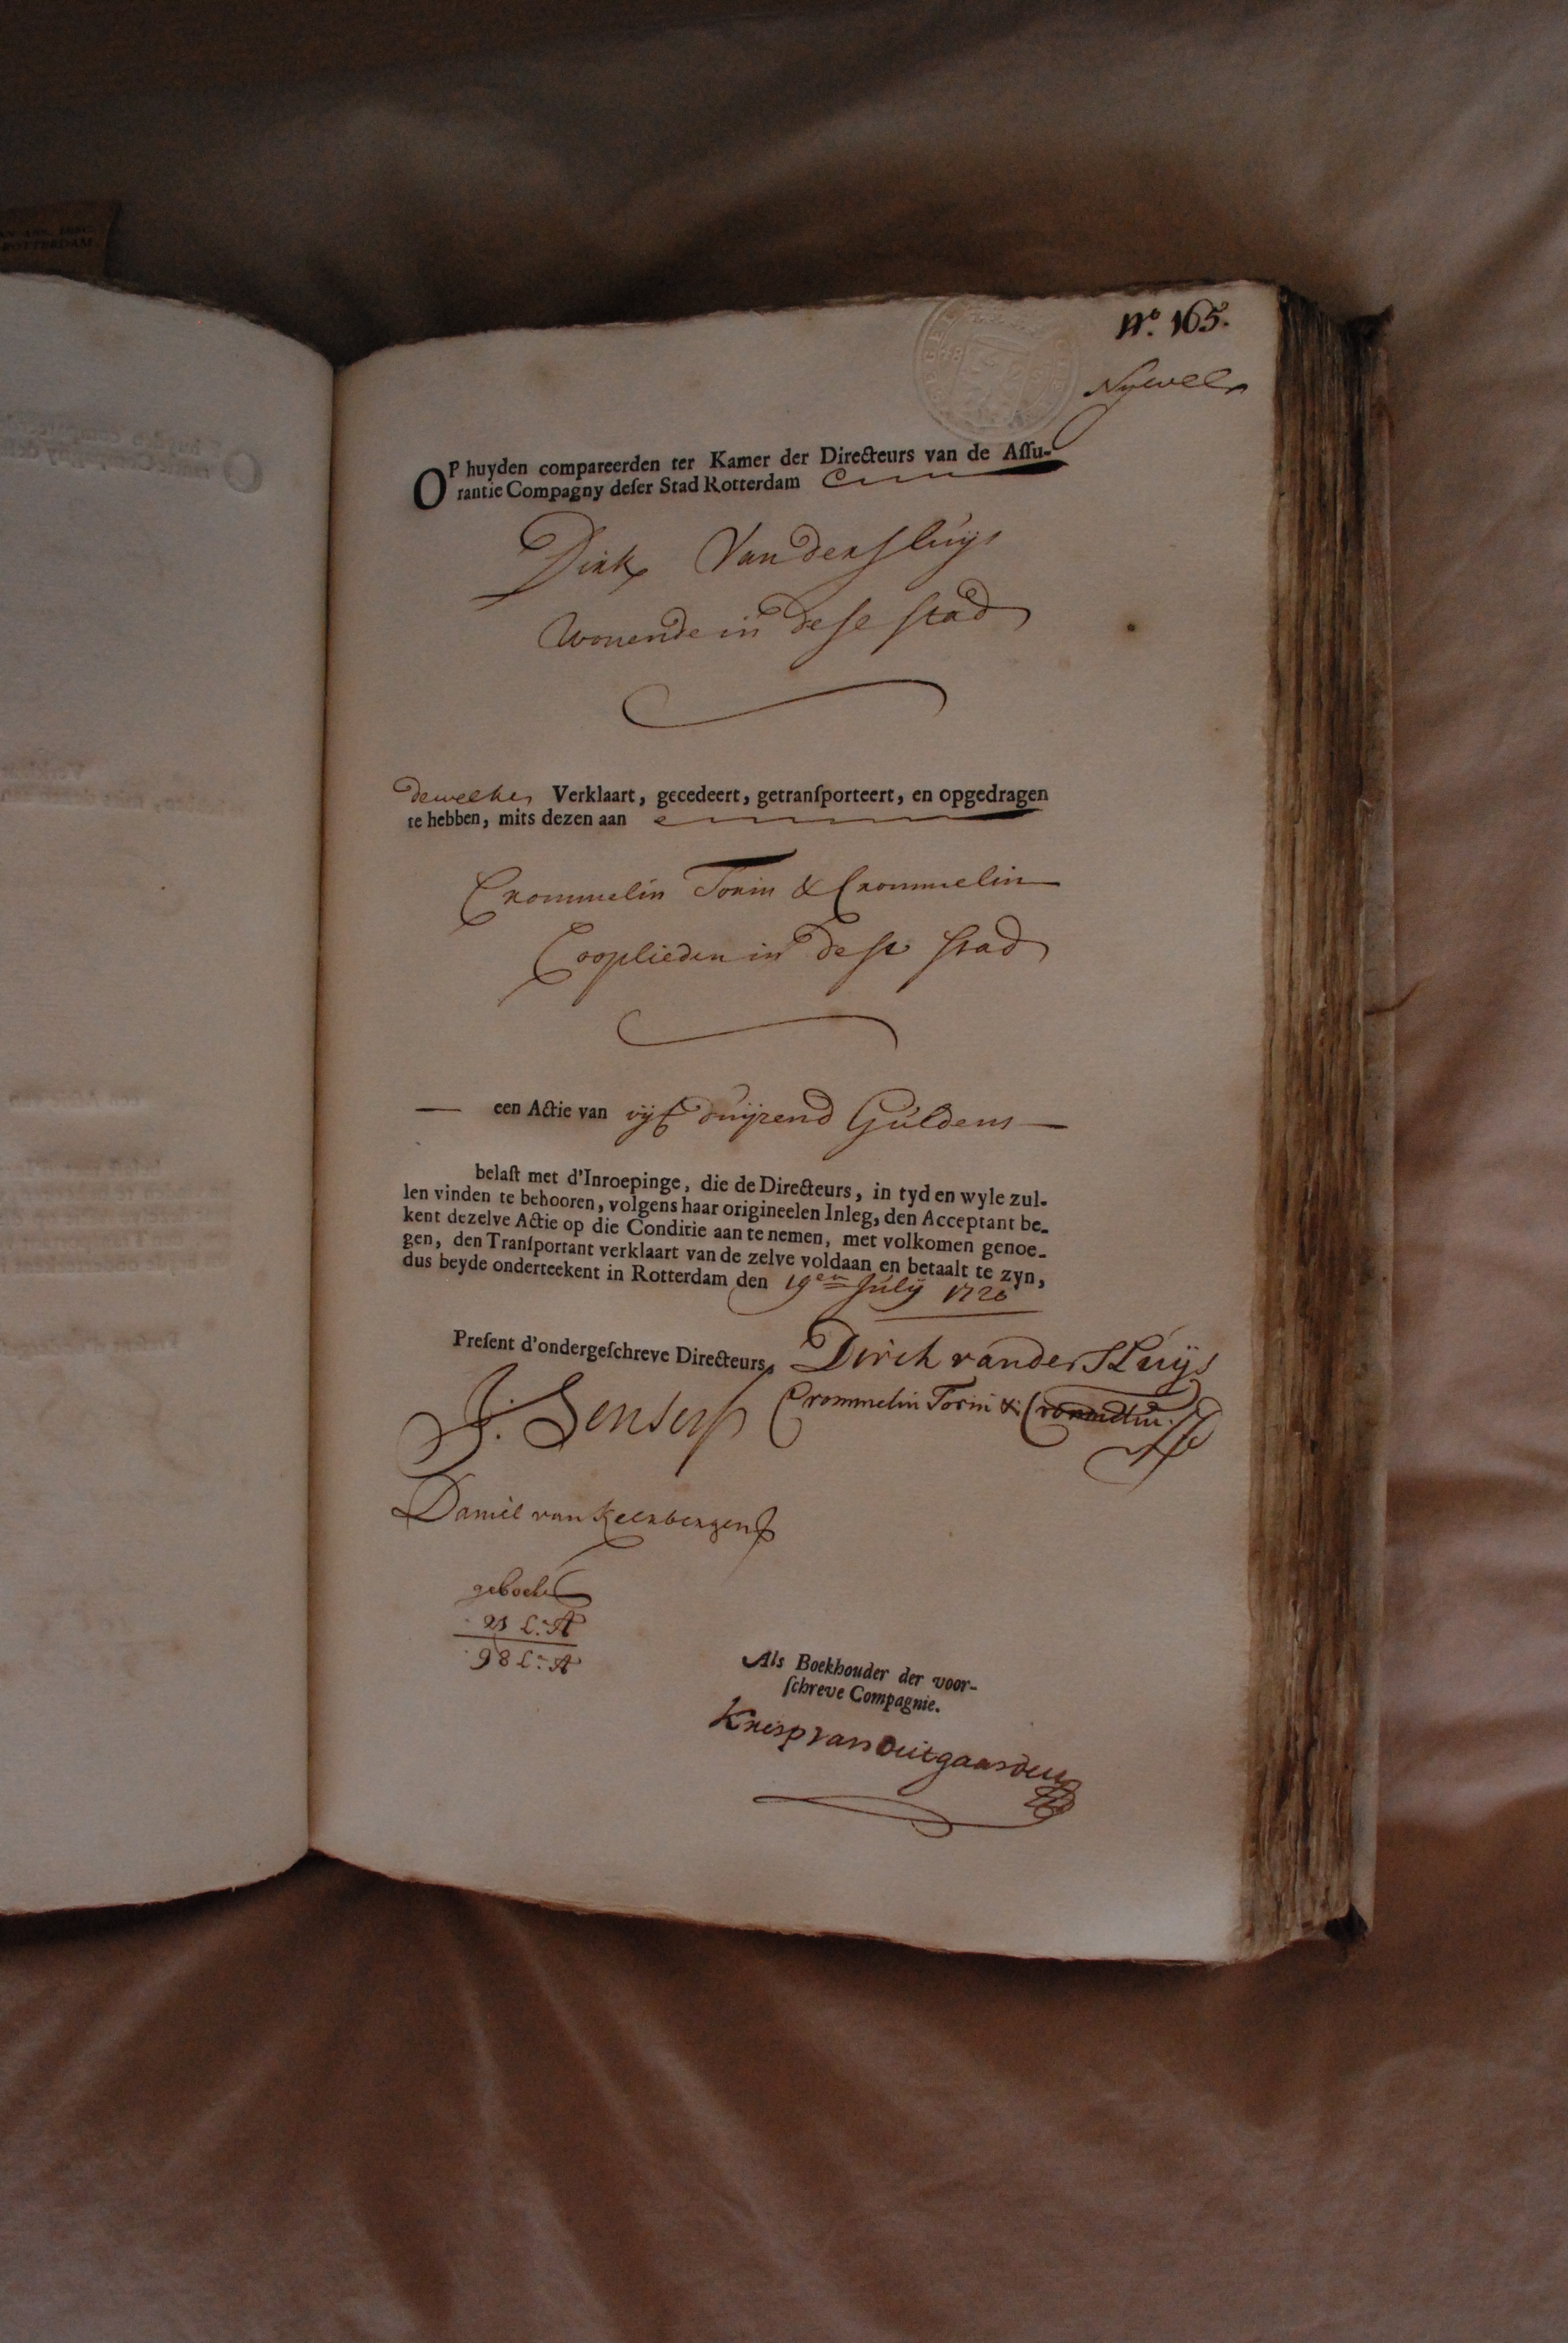 ROTTERDAM
Nº. 165.
Nyevelt
OP huyden compareerden ter Kamer der Directeurs van de Aſſu-
rantie Compagny deſer Stad Rotterdam
Dirk Van der Sluijs
Wonende in deſe ſtad
dewelke Verklaart, gecedeert, getranſporteert, en opgedragen
te hebben, mits dezen aan
Crommelin Torin & Crommelin
Cooplieden in deſe ſtad
een Actie van vijf duijzend Guldens
belaſt met d'Inroepinge, die de Directeurs, in tyd en wyle zul-
len vinden te behooren, volgens haar origineelen Inleg, den Acceptant be-
kent dezelve Actie op die Conditie aan te nemen, met volkomen genoe-
gen, den Tranſportant verklaart van de zelve voldaan en betaalt te zyn,
dus beyde onderteekent in Rotterdam den 19en July 1720
Preſent d'ondergeſchreve Directeurs, Dirck vander Sluijs
J. Senserff Crommelin Torin & Crommelin
Daniel van Keerbergen
geboekt
21 L:A
98 L:A
Als Boekhouder der voor-
ſchreve Compagnie.
Knisp van Outgaarden